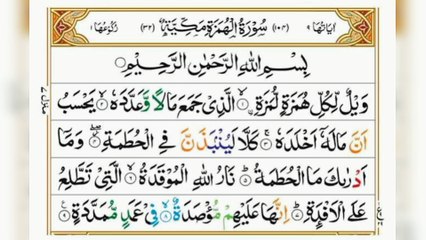 اٰیَاتُهَا ٩ (١٠٤) سُوْرَةُ الْهُمَزَةِ مَكِّيَّةٌ (٣٢) رُكُوْعُهَا ١
بِسْمِ اللهِ الرَّحْمٰنِ الرَّحِيْمِ
وَيْلٌ لِّكُلِّ هُمَزَةٍ لُّمَزَةِ ۙ﴿١﴾ الَّذِيْ جَمَعَ مَالًا وَّعَدَّدَهٗ ۙ﴿٢﴾ يَحْسَبُ
اَنَّ مَالَهٗۤ اَخْلَدَهٗ ۚ﴿٣﴾ كَلَّا لَيُنْۢبَذَنَّ فِي الْحُطَمَةِ ۖ﴿٤﴾ وَمَاۤ
اَدْرٰىكَ مَا الْحُطَمَةُ ؕ﴿٥﴾ نَارُ اللهِ الْمُوْقَدَةُ ۙ﴿٦﴾ الَّتِيْ تَطَّلِعُ
عَلَى الْاَفْـِٕدَةِ ؕ﴿٧﴾ اِنَّهَا عَلَيْهِمْ مُّؤْصَدَةٌ ۙ﴿٨﴾ فِيْ عَمَدٍ مُّمَدَّدَةٍ ﴿٩﴾